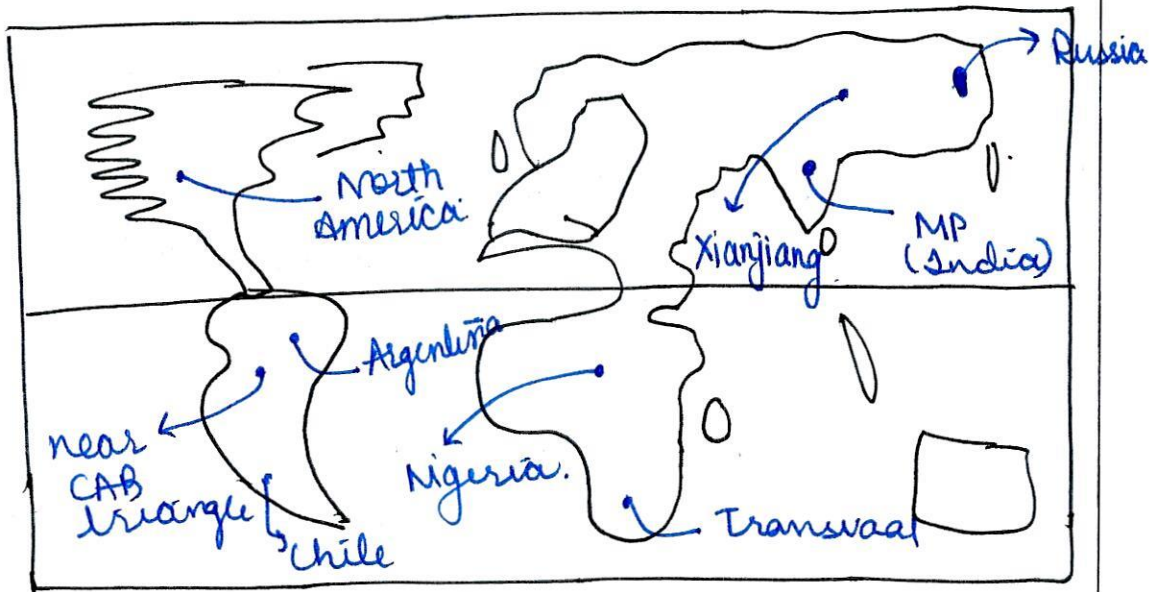 Russia
North
America.
Xianjiang
MP
(India)
Argentina
near
CAB
triangle
Chile
Nigeria.
Transvaal